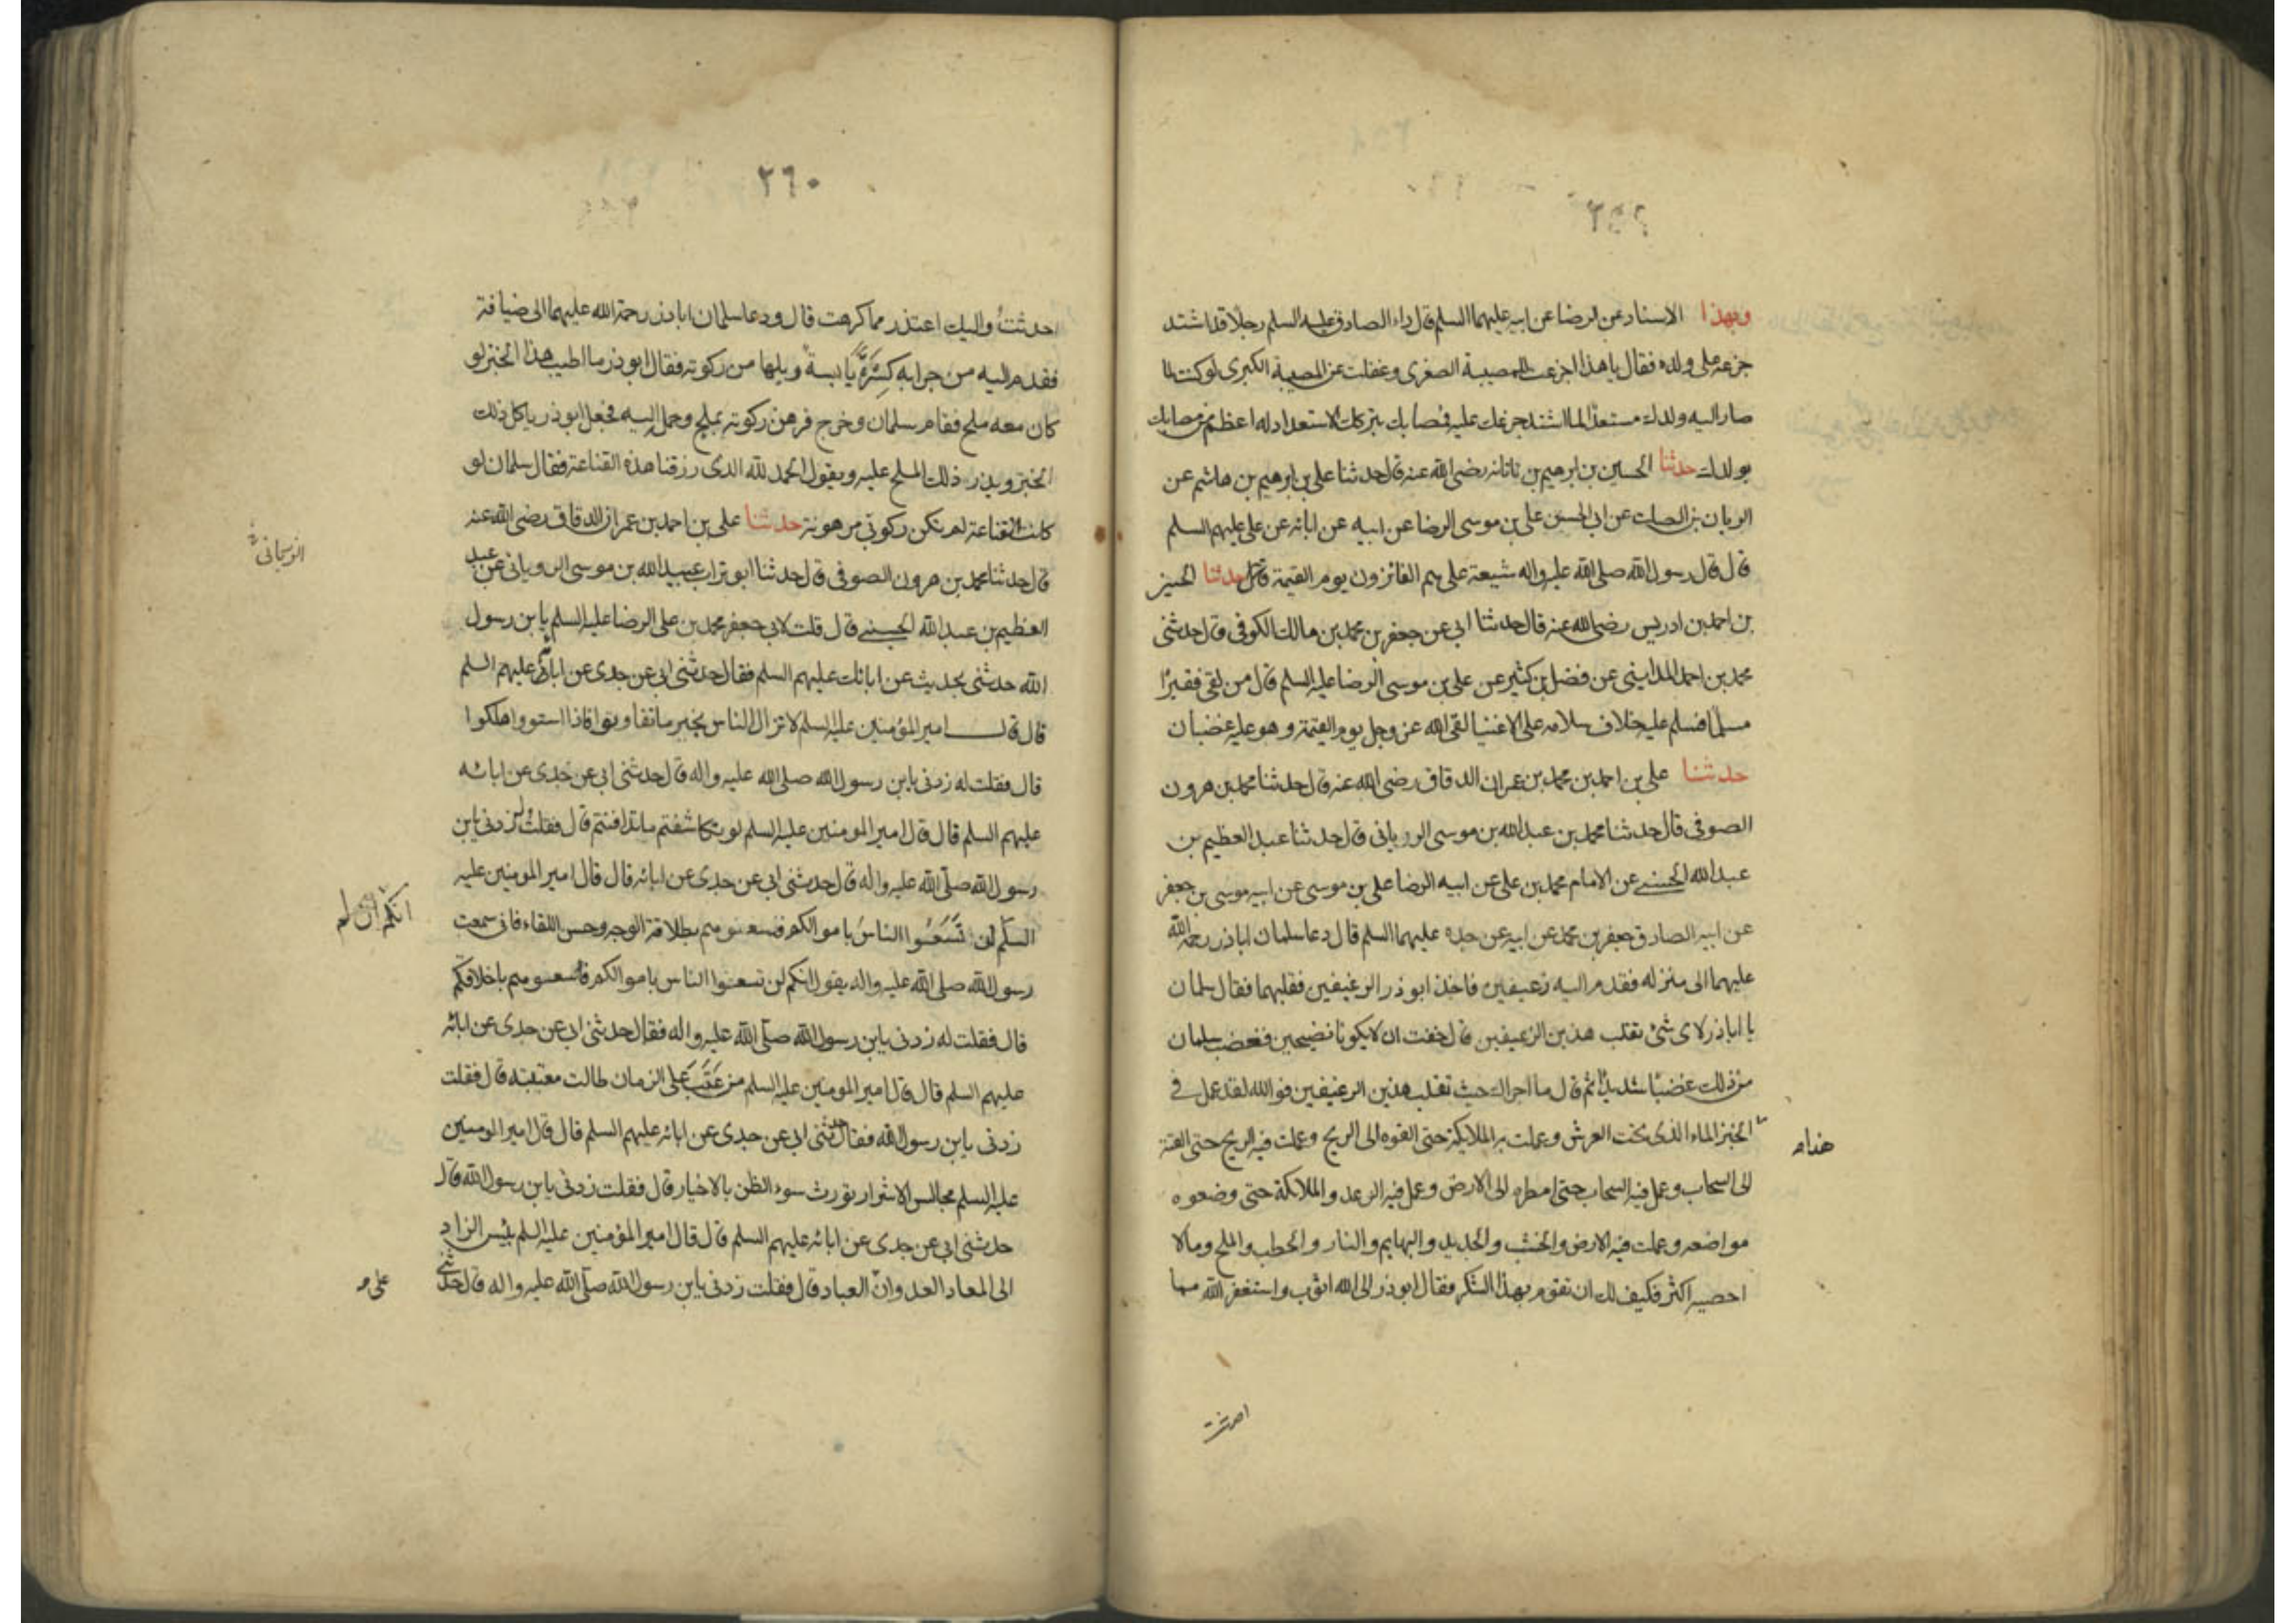 وبهذا الاسناد عن الرضا عن ابيه عليهما السلم قال راء الصادق عليه السلم رجلا قد اشتد
جزعه على ولده فقال يا هذا اجزعت للمصيبة الصغرى وغفلت عن المصيبة الكبرى لو كنت لما
صار اليه ولدك مستعدا لما اشتد جزعك عليه فمصابك بتركك الاستعداد له اعظم من مصابك
بولدك حدثنا الحسين بن ابرهيم بن ناتانه رضى الله عنه قال حدثنا على بن ابرهيم بن هاشم عن
الريان بن الصلت عن ابى الحسن على بن موسى الرضا عن ابيه عن ابائه عن على عليهم السلم
قال قال رسول الله صلى الله عليه واله شيعة على هم الفائزون يوم القيمة حدثنا الحسين
بن احمد بن ادريس رضى الله عنه قال حدثنا ابى عن جعفر بن محمد بن مالك الكوفى قال حدثنى
محمد بن احمد المداينى عن فضل بن كثير عن على بن موسى الرضا عليه السلم قال من لقى فقيرا
مسلما فسلم عليه خلاف سلامه على الاغنيا لقى الله عز وجل يوم القيمة وهو عليه غضبان
حدثنا على بن احمد بن محمد بن عمران الدقاق رضى الله عنه قال حدثنا محمد بن هرون
الصوفى قال حدثنا محمد بن عبد الله بن موسى الرويانى قال حدثنا عبد العظيم بن
عبد الله الحسنى عن الامام محمد بن على عن ابيه الرضا على بن موسى عن ابيه موسى بن جعفر
عن ابيه الصادق جعفر بن محمد عن ابيه عن جده عليهما السلم قال دعا سلمان اباذر رحمة الله
عليهما الى منزله فقدم اليه رغيفين فاخذ ابو ذر الرغيفين فقلبهما فقال سلمان
يا اباذر لاى شئ تقلب هذين الرغيفين قال خفت ان لا يكونا نضيجين فغضب سلمان
من ذلك غضبا شديدا ثم قال ما اجراك حيث تقلب هذين الرغيفين فوالله لقد عمل فى
الخبز الماء الذى تحت العرش وعملت به الملايكة حتى القوه الى الريح وعملت فيه الريح حتى القته
هذام
الى السحاب وعمل فيه السحاب حتى امطره الى الارض وعمل فيه الرعد والملائكة حتى وضعوه
مواضعه وعملت فيه الارض والخشب والحديد والبهايم والنار والحطب والملح وما لا
احصيه اكثر فكيف لك ان تقوم بهذا الشكر فقال ابو ذر الى الله اتوب واستغفر الله مما
احدثت
٢٦٠
احدثت واليك اعتذر مما كرهت قال ودعا سلمان اباذر رحمة الله عليهما الى ضيافة
فقدم اليه من جرابه كسرة يابسة وبلها من ركوته فقال ابو ذر ما اطيب هذا الخبز لو
كان معه ملح فقام سلمان وخرج فرهن ركوته بملح وحمل اليه فجعل ابو ذر ياكل ذلك
الخبز ويذر ذلك الملح عليه ويقول الحمد لله الذى رزقنا هذه القناعة فقال سلمان لو
كانت القناعة لم تكن ركوتى مرهونة حدثنا على بن احمد بن عمران الدقاق رضى الله عنه
قال حدثنا محمد بن هرون الصوفى قال حدثنا ابو تراب عبيد الله بن موسى الرويانى عن عبد
العظيم بن عبد الله الحسنى قال قلت لابى جعفر محمد بن على الرضا عليه السلم يا بن رسول
الله حدثنى بحديث عن ابائك عليهم السلم فقال حدثنى ابى عن جدى عن ابائه عليهم السلم
قال قال امير المؤمنين عليه السلم لا تزال الناس بخير ما تفاوتوا فاذا استووا هلكوا
قال فقلت له زدنى يابن رسول الله صلى الله عليه واله قال حدثنى ابى عن جدى عن ابائه
عليهم السلم قال قال امير المومنين عليه السلم لو تكاشفتم ما تدافنتم قال فقلت له زدنى يابن
رسول الله صلى الله عليه واله قال حدثنى ابى عن جدى عن ابائه قال قال امير المومنين عليه
انكم
السلم لن تسعوا الناس باموالكم فسعوهم بطلاقة الوجه وحسن اللقاء فانى سمعت
رسول الله صلى الله عليه واله يقول انكم لن تسعوا الناس باموالكم فسعوهم باخلاقكم
قال فقلت له زدنى يابن رسول الله صلى الله عليه واله فقال حدثنى ابى عن جدى عن ابائه
عليهم السلم قال قال امير المومنين عليه السلم من عتب على الزمان طالت معتبته قال فقلت
زدنى يابن رسول الله فقال حدثنى ابى عن جدى عن ابائه عليهم السلم قال قال امير المومنين
عليه السلم مجالس الاشرار تورث سوء الظن بالاخيار قال فقلت زدنى يابن رسول الله قال
حدثنى ابى عن جدى عن ابائه عليهم السلم قال قال امير المؤمنين عليه السلم بئس الزاد
الى المعاد العدوان العباد قال فقلت زدنى يابن رسول الله صلى الله عليه واله قال حدثنى
على م